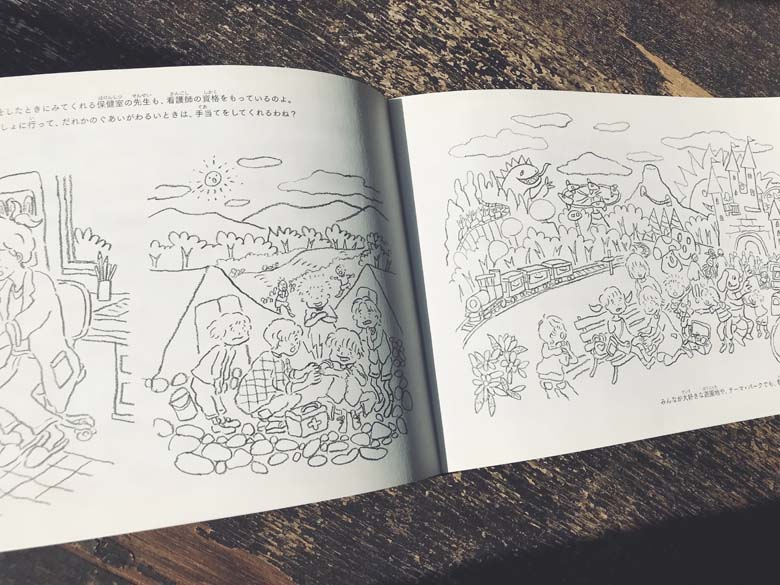 をしたときにみてくれる保健室の先生も、看護師の資格をもっているのよ。
しょに行って、だれかのぐあいがわるいときは、手当てをしてくれるわね？
みんなが大好きな遊園地や、テーマ・パークでも、